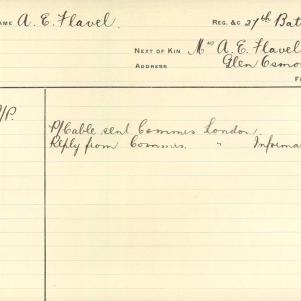 NAME A. E. Flavel. REG. &C 27th Bat
NEXT OF KIN Mrs A. E. Flavel
ADDRESS Glen Osmo
/P. P/Cable sent Commis London.
Reply from Commis. " Informa